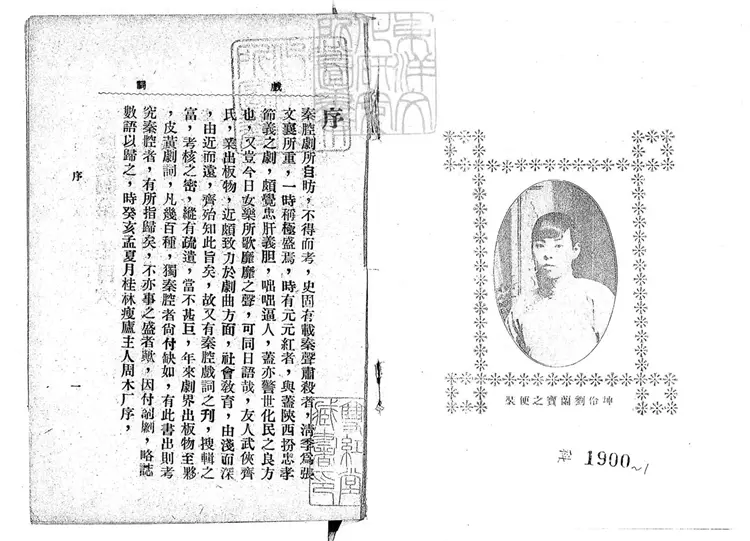 東洋文
化研究
坤伶劉蘭寶之便裝
1900~1
戲詞
序
秦腔劇所自昉，不得而考，史固有載秦聲肅殺者，清季爲張
文襄所重，一時稱極盛焉，時有元元紅者，與蓋陝西扮忠孝
節義之劇，頗覺忠肝義胆，咄咄逼人，蓋亦警世化民之良方
也，又豈今日女樂所歌靡靡之聲，可同日語哉，友人武俠齊
氏，業出板物，近頗致力於劇曲方面，社會敎育，由淺而深
，由近而遠，齊殆知此旨矣，故又有秦腔戲詞之刊，搜輯之
富，考核之密，縱有疏遺，當不甚巨，年來劇界出板物至夥
，皮黃劇詞，凡幾百種，獨秦腔者尙付缺如，有此書出則考
究秦腔者，有所指歸矣，不亦事之盛者歟，因付剞劂，略誌
數語以歸之，時癸亥孟夏月桂林瘦廬主人周木厂序，
序 一
雙紅堂
藏書印